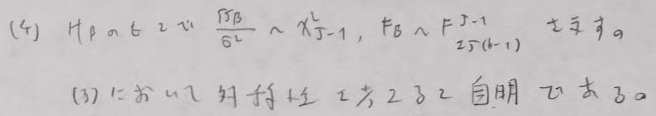 (4) H_β のもとで \frac{S_β}{σ^2} ~ χ^2_{J-1}, F_B ~ F^{J-1}_{2J(6-1)} を示す。
(3) において対称性を考えると自明である。